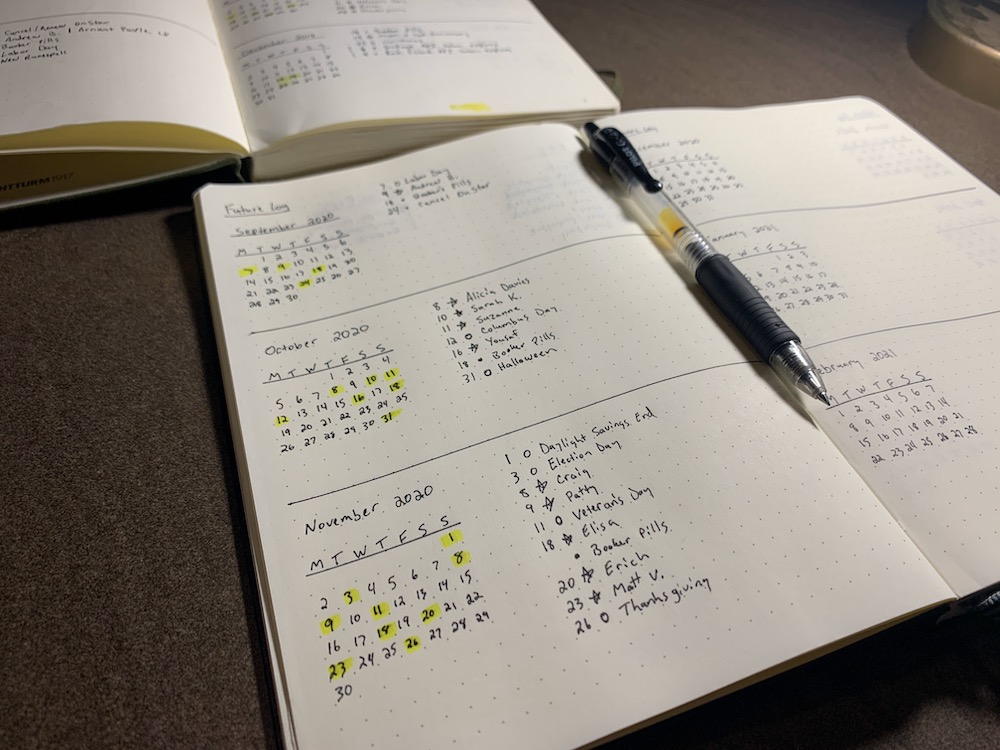 Cancel/Renew OnStar
Andrew B.
Booker Pills
Labor Day
M T W T F S S
NTTURM1917
Future Log
September 2020
M T W T F S S
1 2 3 4 5 6
7 8 9 10 11 12 13
14 15 16 17 18 19 20
21 22 23 24 25 26 27
28 29 30
7 o Labor Day
9 ☆ Andrew B.
18 • Booker Pills
24 • Cancel OnStar
October 2020
M T W T F S S
1 2 3 4
5 6 7 8 9 10 11
12 13 14 15 16 17 18
19 20 21 22 23 24 25
26 27 28 29 30 31
8 ☆ Alicia Davies
10 ☆ Sarah K.
11 ☆ Suzanne
12 o Columbus Day
16 ☆ Yousaf
18 • Booker Pills
31 o Halloween
November 2020
M T W T F S S
1
2 3 4 5 6 7 8
9 10 11 12 13 14 15
16 17 18 19 20 21 22
23 24 25 26 27 28 29
30
1 o Daylight Savings End
3 o Election Day
8 ☆ Craig
9 ☆ Patty
11 o Veteran's Day
18 ☆ Elisa
• Booker Pills
20 ☆ Erich
23 ☆ Matt V.
26 o Thanksgiving
PILOT G-2
ember 2020
anuary 2021
M T W T F S S
ebruary 2021
M T W T F S S
1 2 3 4 5 6 7
8 9 10 11 12 13 14
15 16 17 18 19 20 21
22 23 24 25 26 27 28